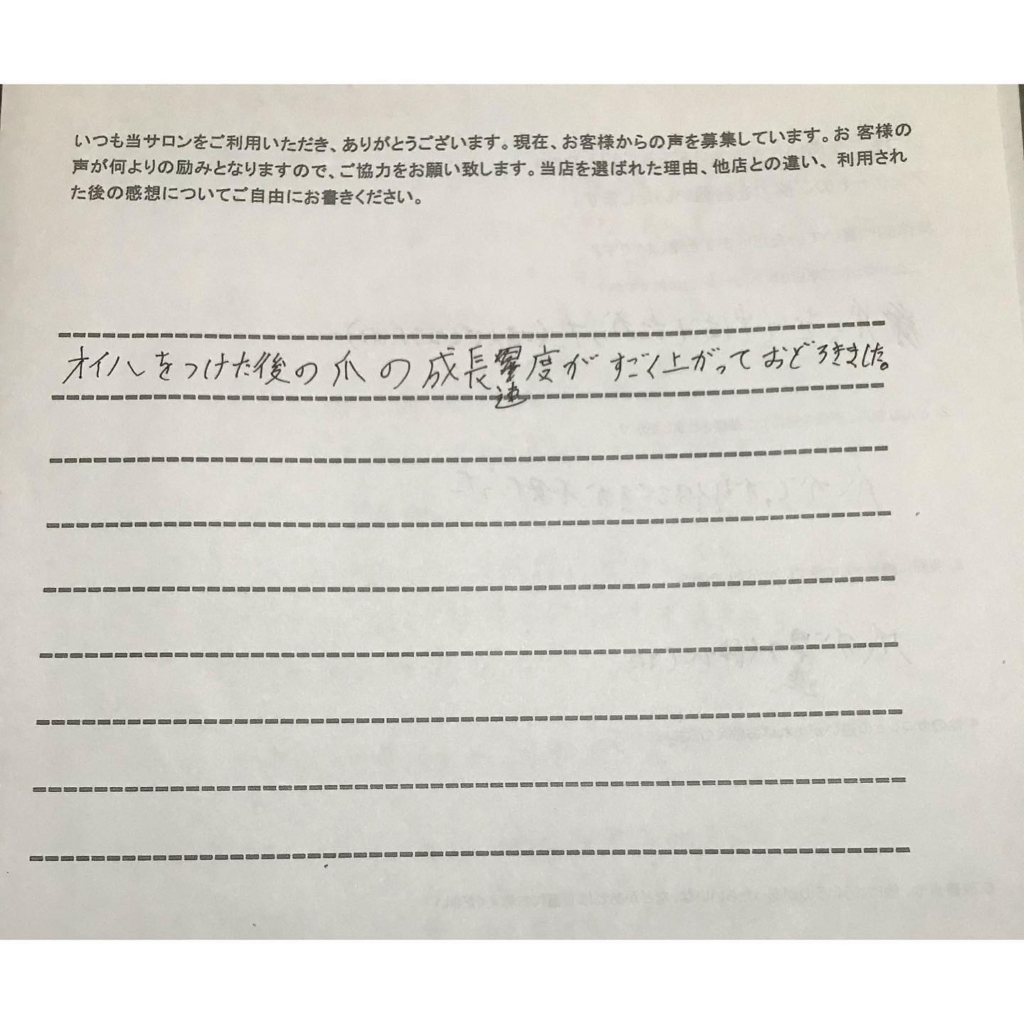 いつも当サロンをご利用いただき、ありがとうございます。現在、お客様からの声を募集しています。お 客様の
声が何よりの励みとなりますので、ご協力をお願い致します。当店を選ばれた理由、他店との違い、利用され
た後の感想についてご自由にお書きください。
オイルをつけた後の爪の成長速度がすごく上がっておどろきました。